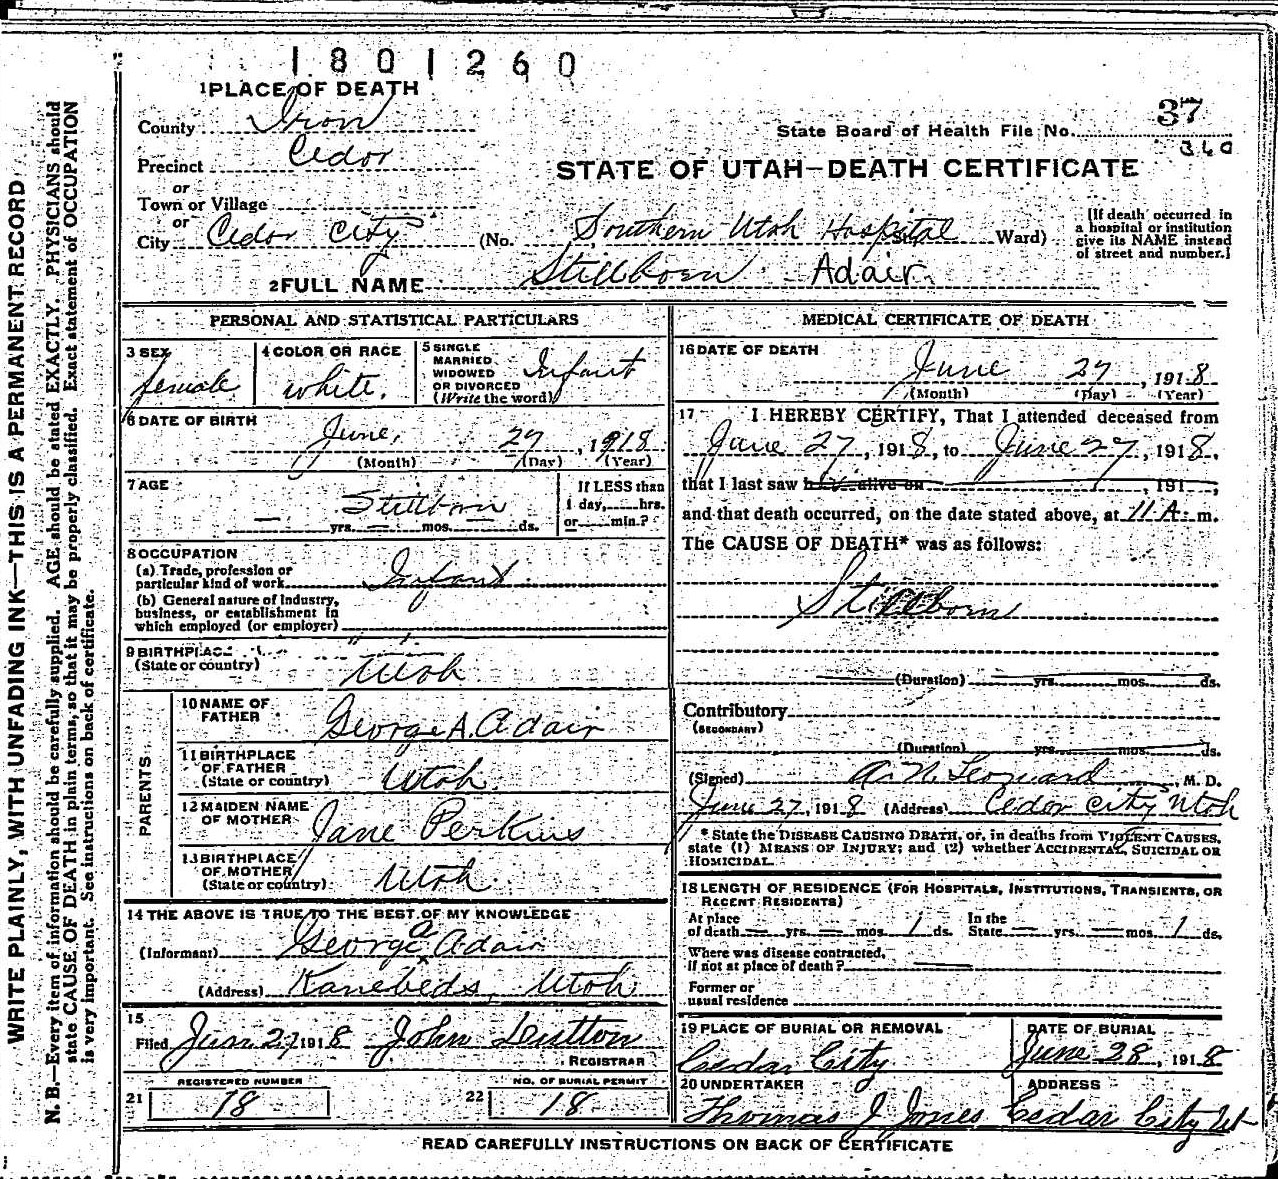 1801260
1 PLACE OF DEATH
County Iron
Precinct Cedor
or
Town or Village
or
City Cedor City (No. Southern Utoh Hospital St. Ward)
(If death occurred in
a hospital or institution
give its NAME instead
of street and number.)
State Board of Health File No. 37
360
STATE OF UTAH—DEATH CERTIFICATE
2 FULL NAME Stillborn Adair.
PERSONAL AND STATISTICAL PARTICULARS
3 SEX female
4 COLOR OR RACE white.
5 SINGLE
MARRIED
WIDOWED
OR DIVORCED
(Write the word) Infant
6 DATE OF BIRTH
June, 27, 1918
(Month) (Day) (Year)
7 AGE
Stillborn
— yrs. — mos. — ds.
If LESS than
1 day, hrs.
or min.?
8 OCCUPATION
(a) Trade, profession or
particular kind of work Infant
(b) General nature of industry,
business, or establishment in
which employed (or employer)
9 BIRTHPLACE
(State or country) Utoh
PARENTS
10 NAME OF
FATHER George A. Adair
11 BIRTHPLACE
OF FATHER
(State or country) Utoh
12 MAIDEN NAME
OF MOTHER Jane Perkins
13 BIRTHPLACE
OF MOTHER
(State or country) Utoh.
14 THE ABOVE IS TRUE TO THE BEST OF MY KNOWLEDGE
(Informant) George a Adair
(Address) Kanebeds, Utoh
15
Filed Jun 27 1918 John
REGISTRAR
REGISTERED NUMBER
21 18
NO. OF BURIAL PERMIT
22 18
MEDICAL CERTIFICATE OF DEATH
16 DATE OF DEATH
June 27, 1918
(Month) (Day) (Year)
17 I HEREBY CERTIFY, That I attended deceased from
June 27, 1918, to June 27, 1918,
that I last saw h alive on , 191 ,
and that death occurred, on the date stated above, at 11 A. m.
The CAUSE OF DEATH* was as follows:
Stillborn
(Duration) yrs. mos. ds.
Contributory
(SECONDARY)
(Duration) yrs. mos. ds.
(Signed) A. N. Leonard, M. D.
June 27, 1918 (Address) Cedor City Utoh
* State the DISEASE CAUSING DEATH, or, in deaths from VIOLENT CAUSES,
state (1) MEANS OF INJURY; and (2) whether ACCIDENTAL, SUICIDAL OR
HOMICIDAL.
18 LENGTH OF RESIDENCE (FOR HOSPITALS, INSTITUTIONS, TRANSIENTS, OR
RECENT RESIDENTS)
At place
of death — yrs. — mos. 1 ds.
In the
State — yrs. — mos. 1 ds.
Where was disease contracted,
if not at place of death? —
Former or
usual residence
19 PLACE OF BURIAL OR REMOVAL
Cedar City
DATE OF BURIAL
June 28, 1918
20 UNDERTAKER
Thomas J Jones
ADDRESS
Cedar City Ut
READ CAREFULLY INSTRUCTIONS ON BACK OF CERTIFICATE
WRITE PLAINLY, WITH UNFADING INK—THIS IS A PERMANENT RECORD
N. B.—Every item of information should be carefully supplied. AGE should be stated EXACTLY. PHYSICIANS should
state CAUSE OF DEATH in plain terms, so that it may be properly classified. Exact statement of OCCUPATION
is very important. See instructions on back of certificate.